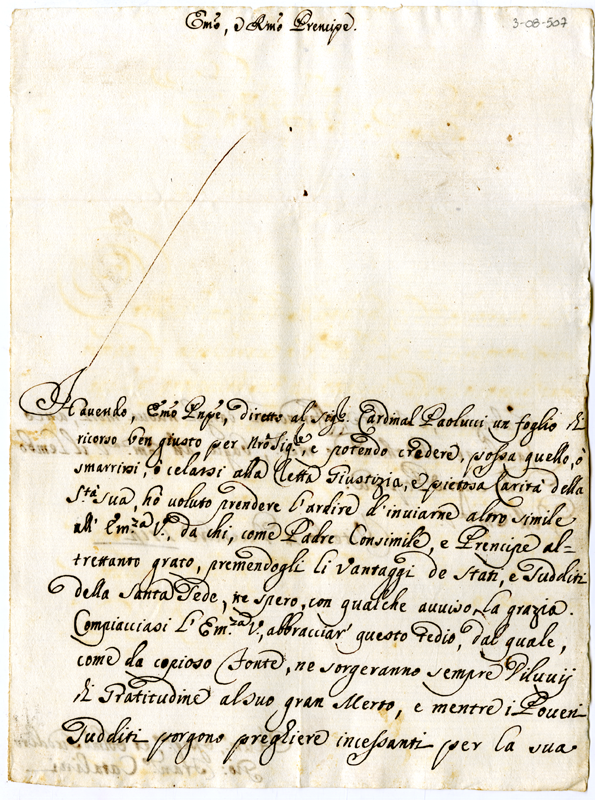 Emo, e Rmo Prencipe.
3-08-507
Havendo, Emo Pnpe, diretto al Sigr. Cardinal Paolucci un foglio di
ricorso ben giusto per Nro Sigre, e potendo credere, possa quello, ò
smarrirsi, ò celarsi alla Retta Giustizia, e pietosa Carità della
Sta sua, hò voluto prendere l'ardire d'inviarne altro simile
all' Em.za V., da chi, come Padre Consimile, e Prencipe al=
trettanto grato, premendogli li Vantaggi de Stati, e Sudditi
della Santa Sede, ne spero, con qualche avviso, la grazia.
Compiacciasi l'Em.za V., abbracciar' questo tedio, dal quale,
come da copioso Fonte, ne sorgeranno sempre Diluvij
di Gratitudine al suo gran Merto, e mentre i Poveri
Sudditi porgono preghiere incessanti per la sua